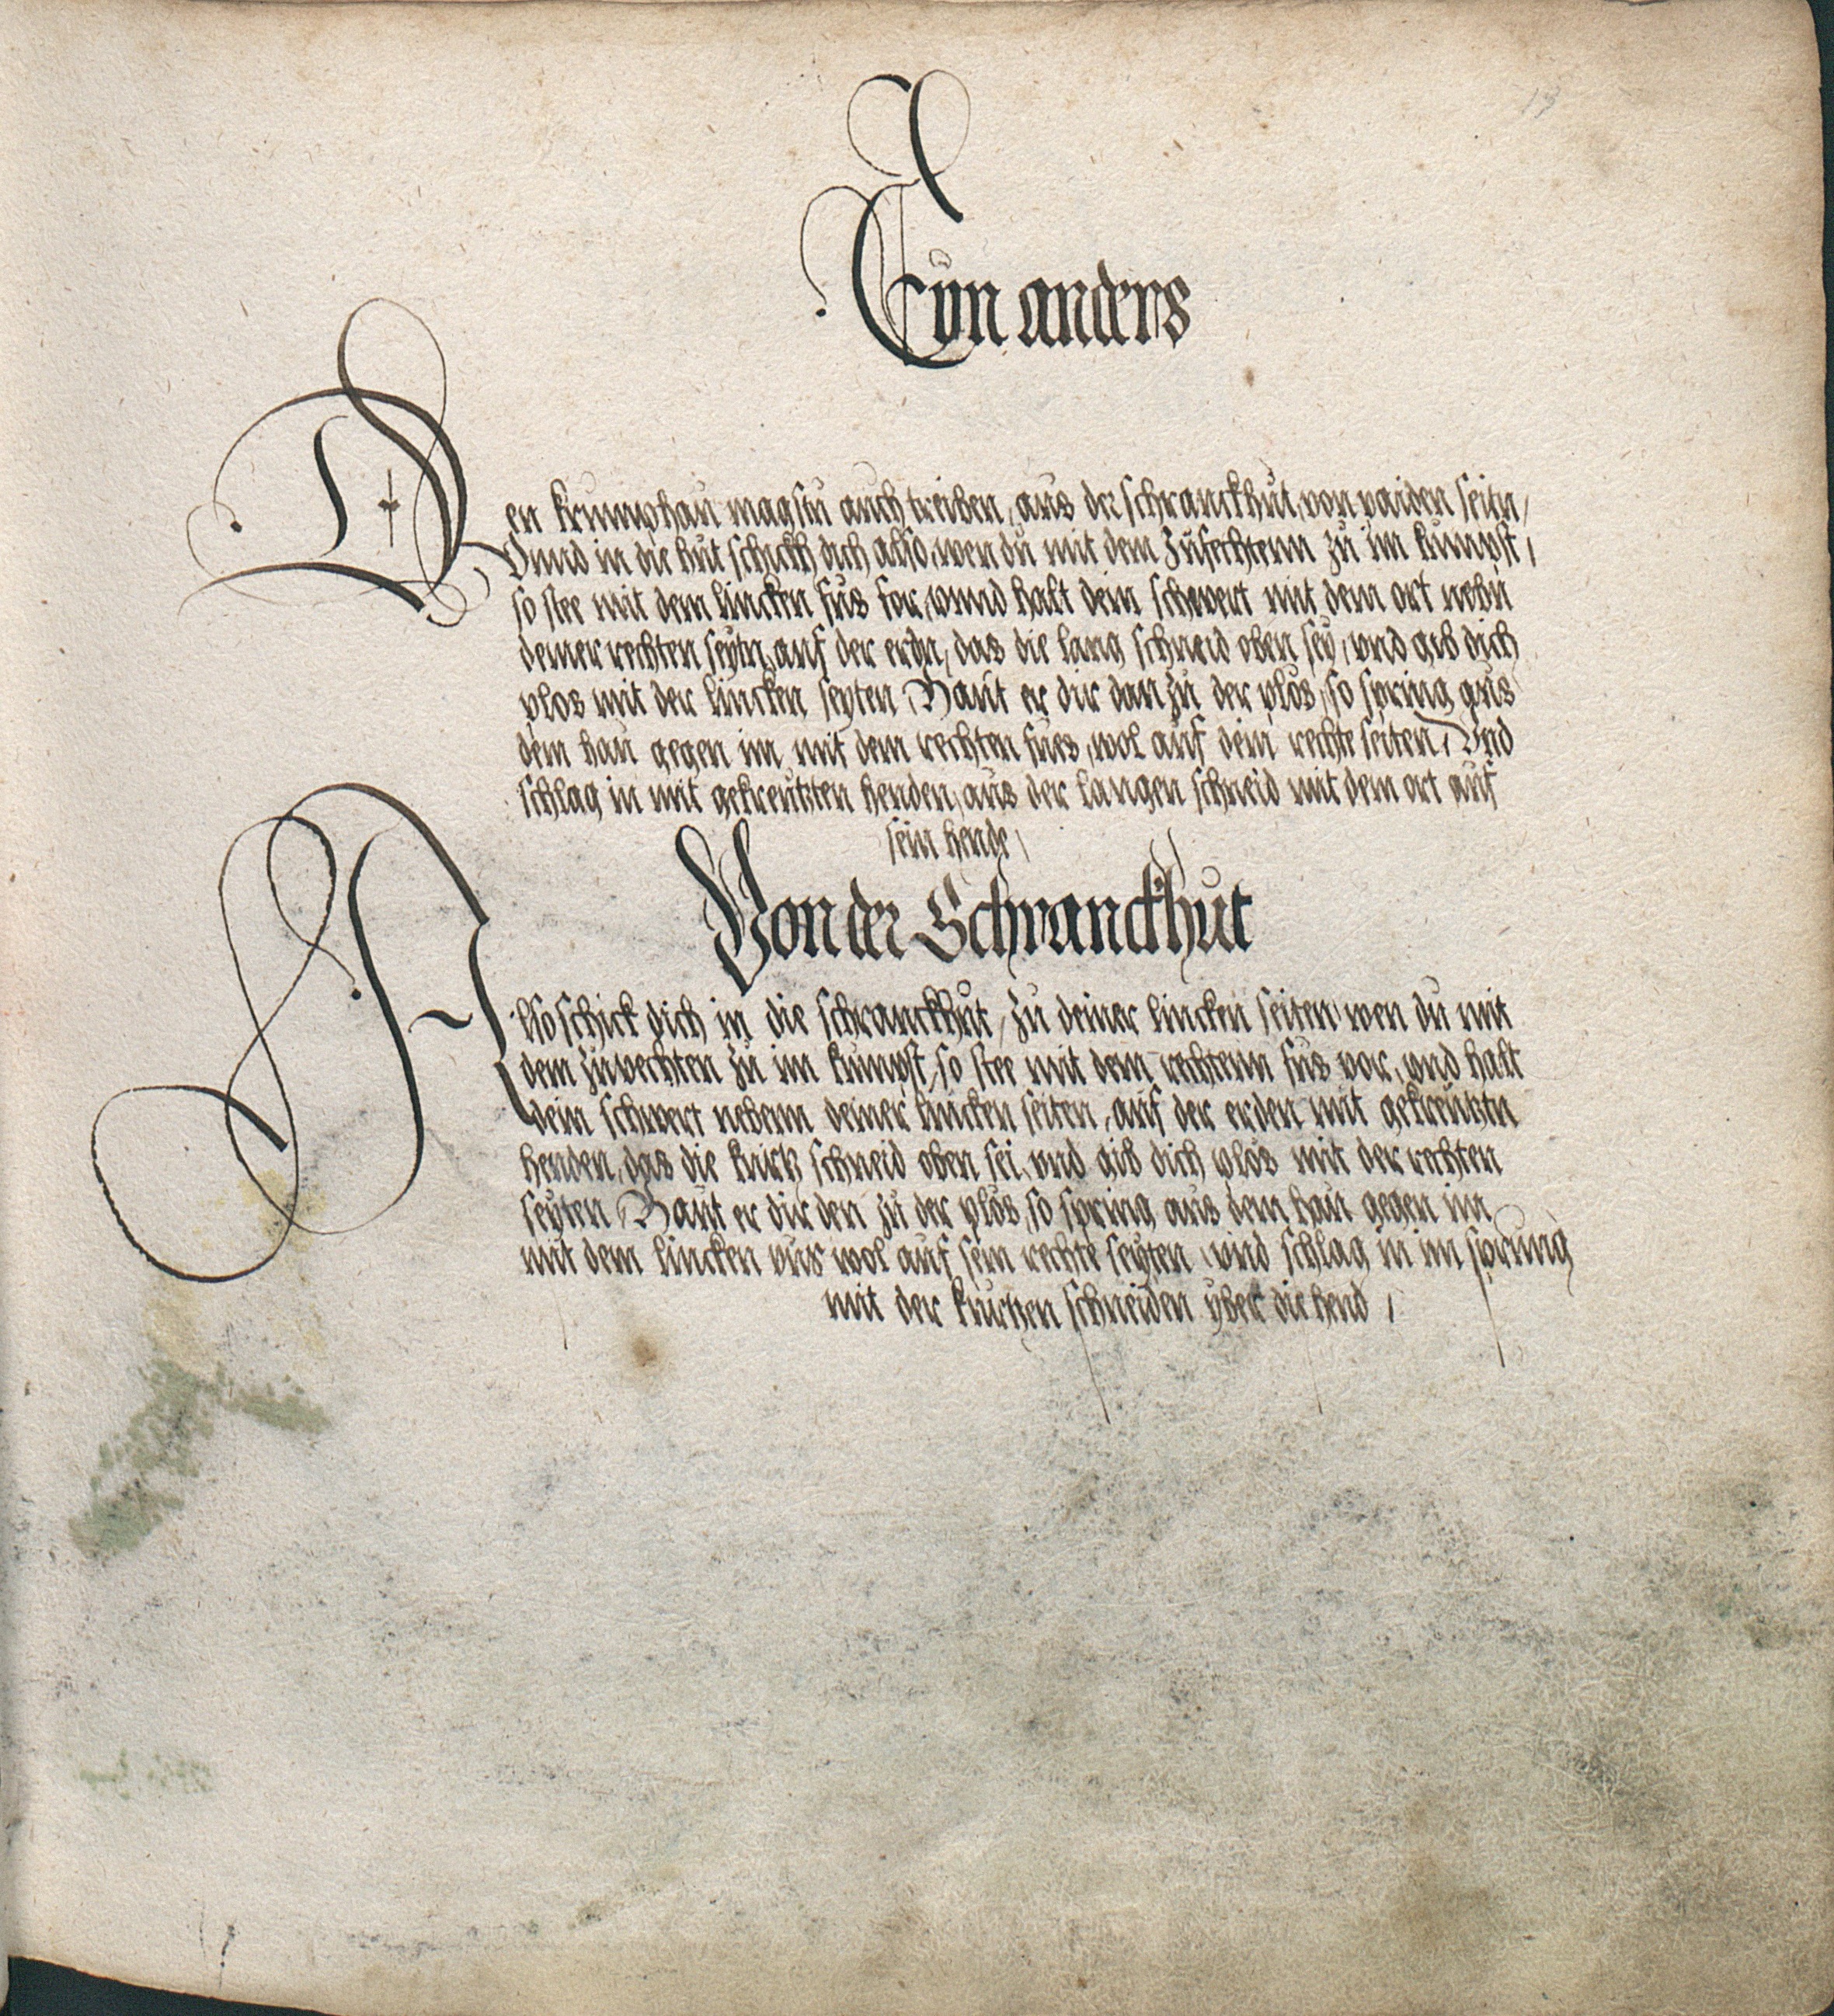 13
Eyn anders
Den krumphau magstu auch treiben, aus der schranckhut, von paiden seitn,
Vnnd in die hut schickh dich also, wen du mit dem zufechtenn zu im kumpst,
so stee mit dem lincken fus for, vnnd halt dein schwert mit dem ort nebn
deiner rechten seytn, auf der erdn, das die lang schneid oben sey, vnd gib dich
plos mit der lincken seyten, Haut er dir dan zu der plos, so spring aus
dem hau gegen im, mit dem rechten fues, wol auf dein rechte seiten, Vnd
schlag in mit gekreutzten henden, aus der langen schneid mit dem ort auf
sein hende,
Von der Schranckhut
Also schick dich in die schranckhut, zu deiner lincken seiten, wen du mit
dem zuvechten zu im kumpst, so stee mit dem rechtenn fus vor, vnd halt
dein schwert nebenn deiner lincken seiten, auf der erden mit gekreutztn
henden, das die kurtz schneid oben sei, vnd gib dich plos mit der rechten
seyten, Haut er dir den zu der plos, so spring aus dem hau gegen im
mit dem lincken vus wol auf sein rechte seyten, vnd schlag in im sprung
mit der kurtzen schneiden yber die hend,